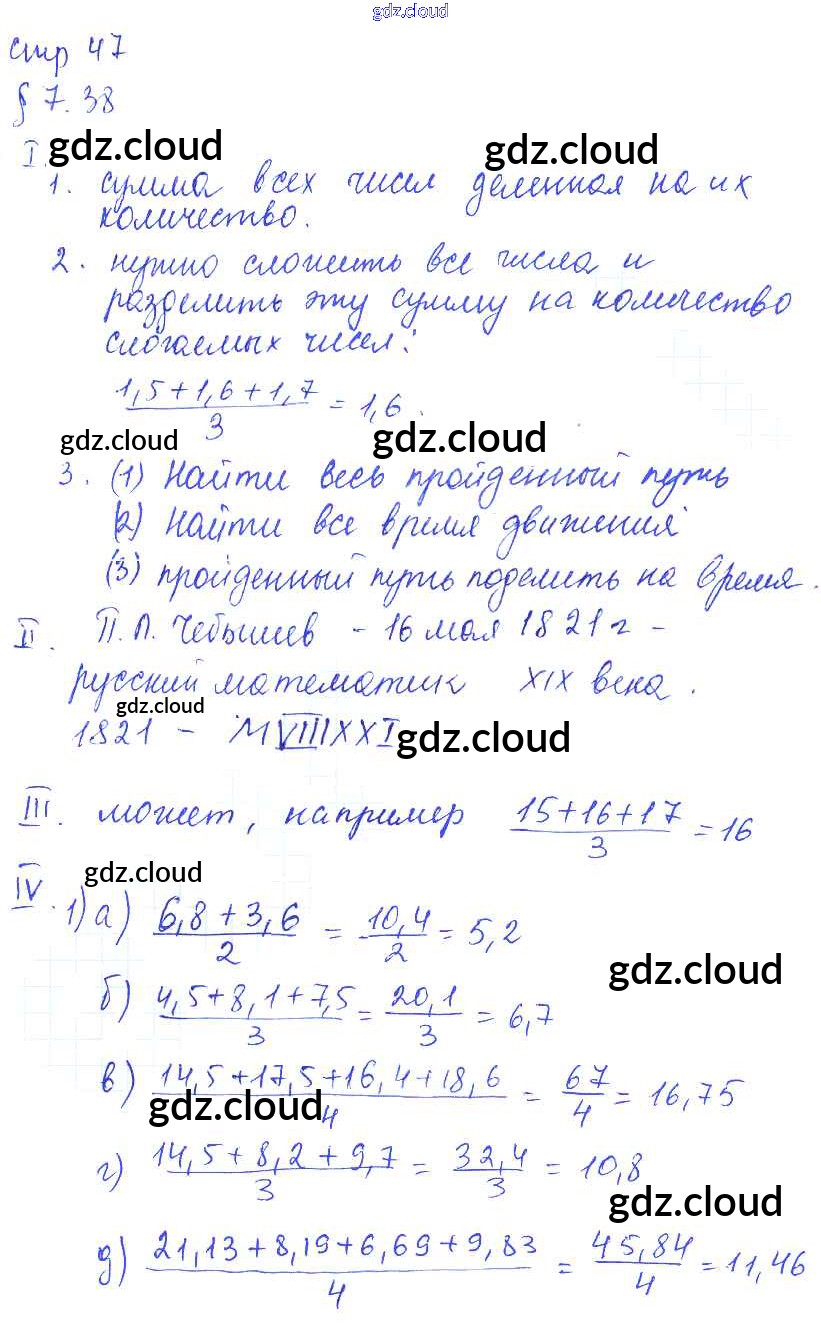 gdz.cloud
стр 47
§ 7.38
gdz.cloud gdz.cloud
I.
1. сумма всех чисел деленная на их
количество.
2. нужно сложить все числа и
разделить эту сумму на количество
слогаемых чисел:
(1,5+1,6+1,7)/3 = 1,6.
gdz.cloud gdz.cloud
3. (1) Найти весь пройденный путь
(2) Найти все время движения
(3) пройденный путь поделить на время.
II. П.Л. Чебышев - 16 мая 1821 г -
русский математик XIX века.
gdz.cloud
1821 - MVIIIXXI
gdz.cloud
III. может, например (15+16+17)/3 = 16
gdz.cloud
IV. 1) а) (6,8+3,6)/2 = 10,4/2 = 5,2
gdz.cloud
б) (4,5+8,1+7,5)/3 = 20,1/3 = 6,7
в) (14,5+17,5+16,4+18,6)/4 = 67/4 = 16,75
gdz.cloud
г) (14,5+8,2+9,7)/3 = 32,4/3 = 10,8
gdz.cloud
д) (21,13+8,19+6,69+9,83)/4 = 45,84/4 = 11,46